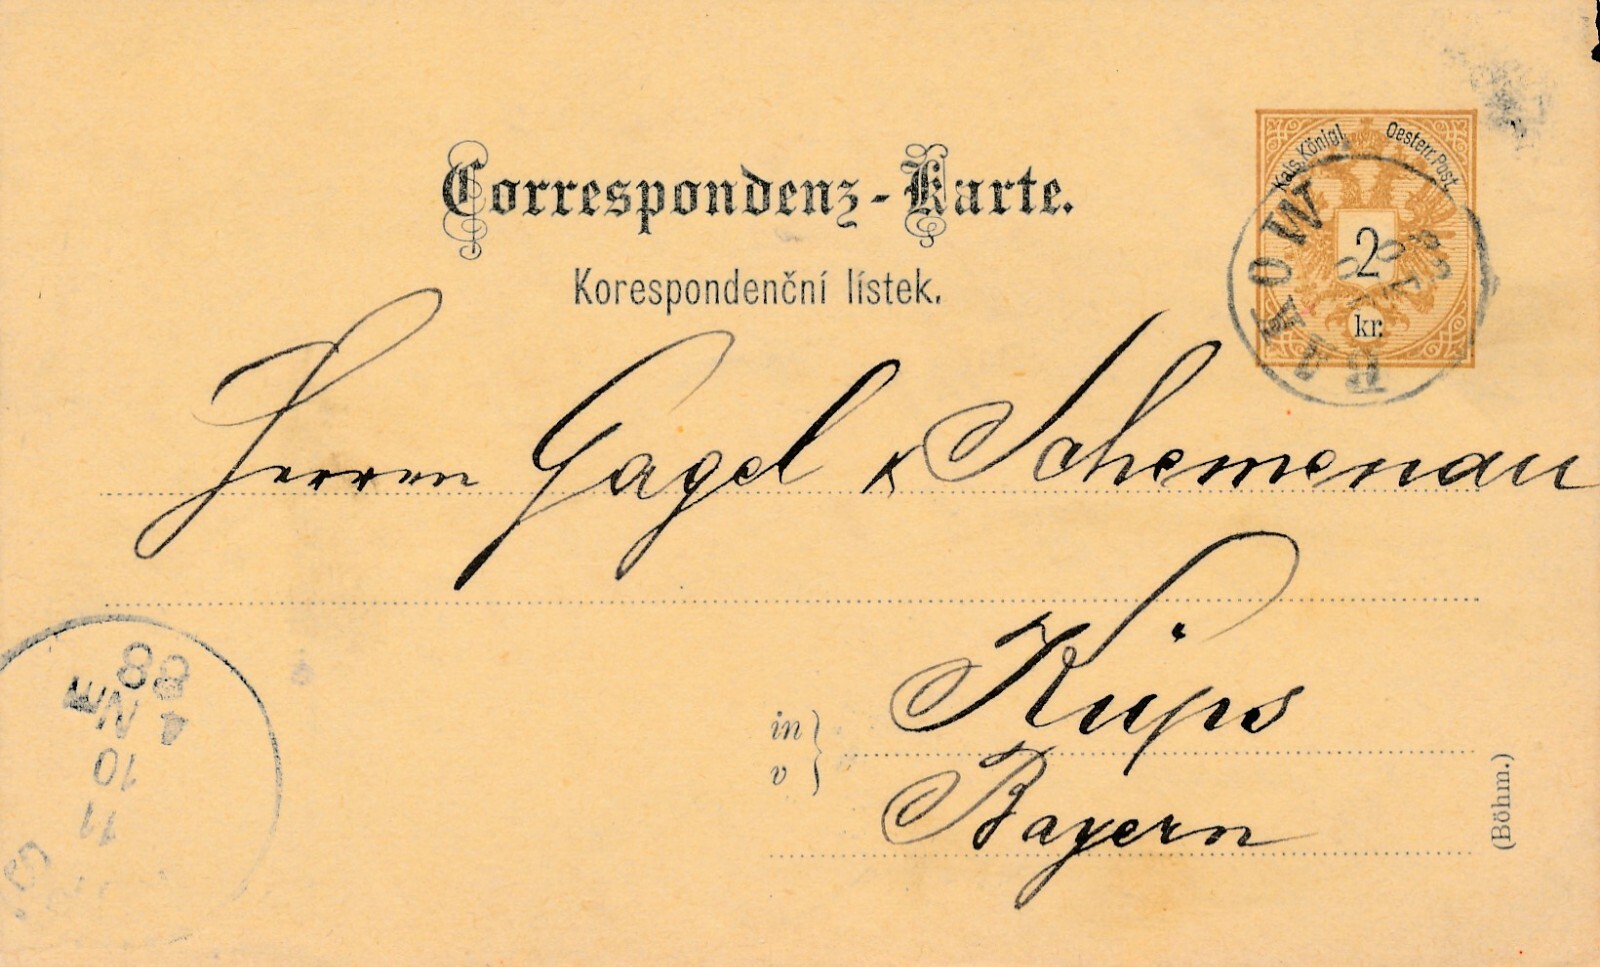 Kais. Königl. Oesterr. Post.
2
kr.
Correspondenz-Karte.
Korespondenční lístek.
Herren Gagel & Schemenau
Küps
in
v
Bayern
(Böhm.)
88
4 Nm
10
11